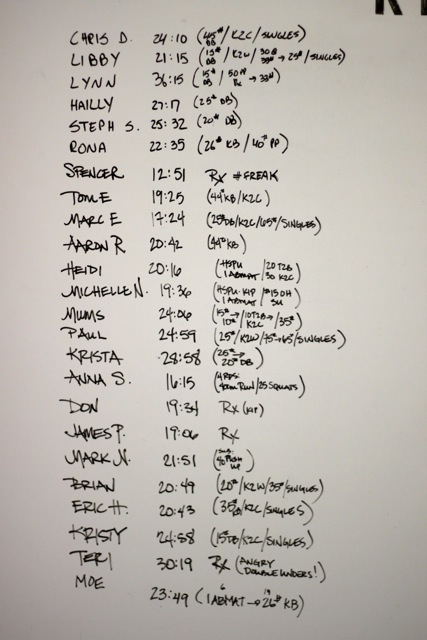 CHRIS D. 24:10 (45# DB/K2C/SINGLES)
LIBBY 21:15 (15# DB/K2W/30# → 25#/SINGLES)
LYNN 36:15 (15# DB/50 PP Rx → 33#)
HAILLY 27:17 (25# DB)
STEPH S. 25:32 (20# DB)
RONA 22:35 (26# KB/40# PP)
SPENCER 12:51 Rx #FREAK
TOM E 19:25 (44# KB/K2C)
MARC E 17:24 (25# DB/K2C/65#/SINGLES)
AARON R 20:42 (44# KB)
HEIDI 20:16 (HSPU 1 ABMAT/20 T2B 30 K2C)
MICHELLE N. 19:36 (HSPU KIP 1 ABMAT/#15 OH)
MUMS 24:06 (15# → 10#/10 T2B → K2C/35#)
PAUL 24:59 (25#/K2W/75# → 65#/SINGLES)
KRISTA 28:58 (25# → 20# DB)
ANNA S. 16:15 (4 RDS: 400m RUN/25 SQUATS)
DON 19:34 Rx (KIP)
JAMES P. 19:06 Rx
MARK N. 21:51 (PUSH UP)
BRIAN 20:49 (20#/K2W/35#/SINGLES)
ERIC H. 20:43 (35#/K2C/SINGLES)
KRISTY 24:58 (15# DB/K2C/SINGLES)
TERI 30:19 Rx (ANGRY DOUBLE UNDERS!)
MOE
23:49 (1 ABMAT → 26# KB)